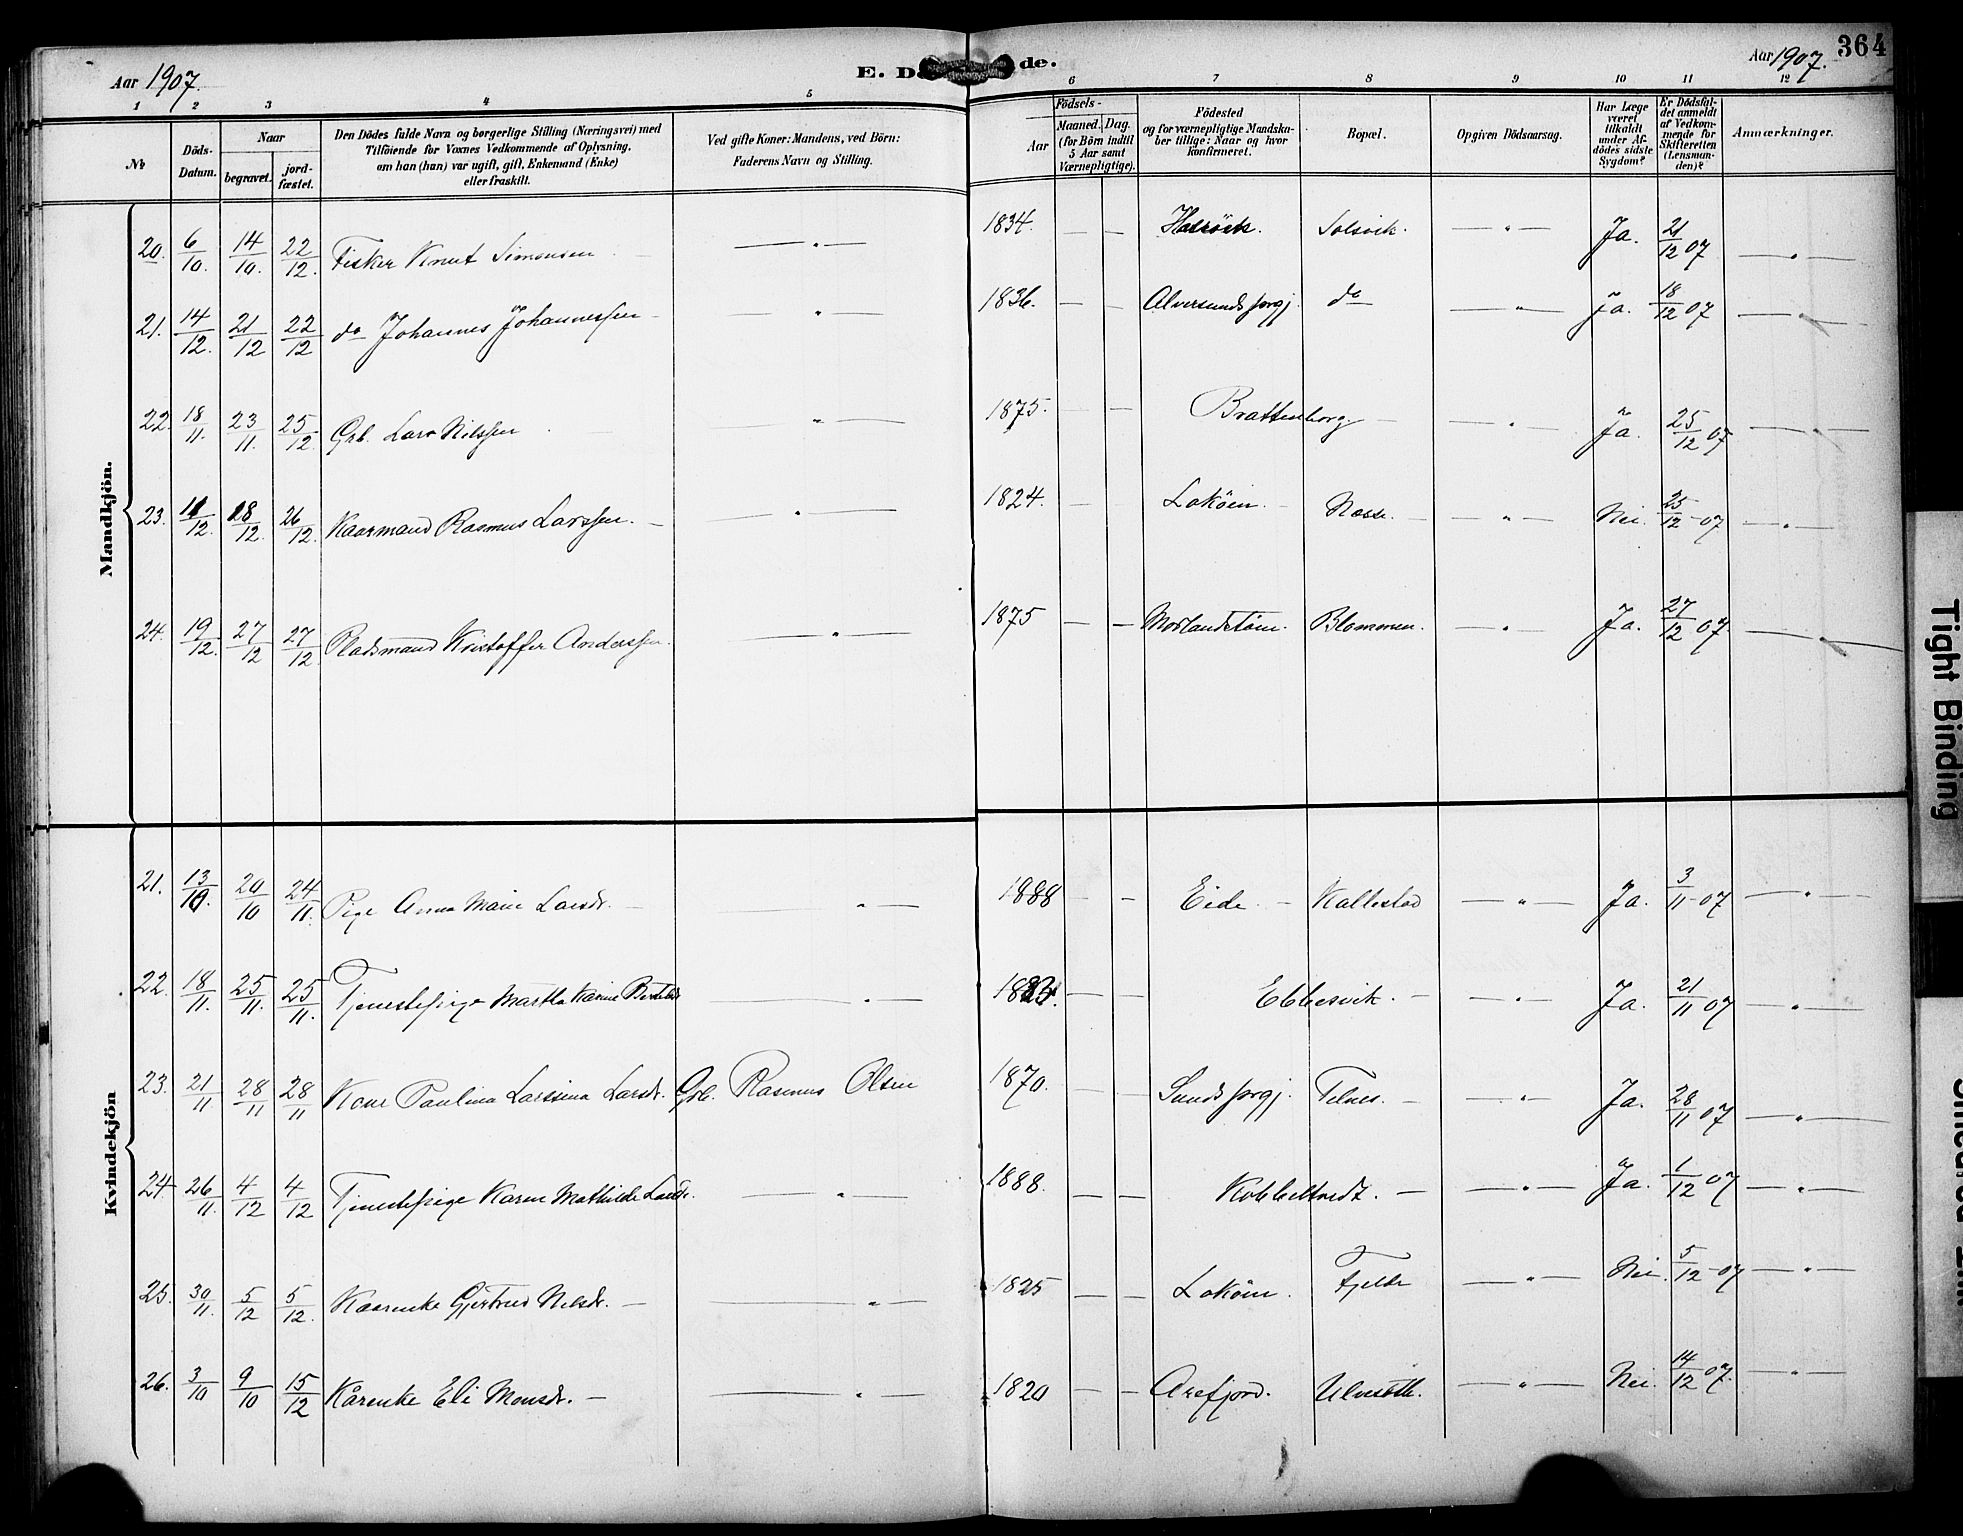 Aar 1907.
E. Dö de.
Aar 1907.
364
1 2 3 4 5 6 7 8 9 10 11 12
No
Döds-Datum.
Naar
begravet. jord-fæstet.
Den Dödes fulde Navn og borgerlige Stilling (Næringsvei) med
Tilföiende for Voxnes Vedkommende af Oplysning,
om han (hun) var ugift, gift, Enkemand (Enke)
eller fraskilt.
Ved gifte Koner: Mandens, ved Börn:
Faderens Navn og Stilling.
Födsels-
Aar Maaned. Dag.
(for Börn indtil
5 Aar samt
Værnepligtige).
Födested
og for værnepligtige Mandska-
ber tillige: Naar og hvor
konfirmeret.
Bopæl.
Opgiven Dödsaarsag.
Har Læge
været
tilkaldt
under Af-
dödes sidste
Sygdom?
Er Dödsfal-
det anmeldt
af Vedkom-
mende for
Skifteretten
(Lensman-
den)?
Anmærkninger.
Mandkjön.
20. 6/10. 14/10. 22/12. Fisker Knut Simonsen — " — 1834. — — Solsvik. — " — Ja. 21/12 07 — " —
21. 14/12. 21/12 22/12 do Johannes Johannessen — — " — 1836. — — Alversunds prgj. do — " — Ja. 18/12 07 — " —
22. 18/11. 23/11. 25/12. Grb. Lars Nilssen — " — 1875. — — Brattenborg — — " — Ja. 25/12 07 — " —
23. 11/12. 18/12. 26/12. Kaarmand Rasmus Larssen. — — " — 1824. — Lokøien. — Nesse. — " — Nei. 25/12-07 — " —
24. 19/12. 27/12 27/12 Pladsmand Kristoffer Anderssen. — " — 1875 — — Blommen. — " — Ja. 27/12 07. — " —
Kvindekjön
21. 13/10. 20/10 24/11. Pige Anna Marie Larsdr. — — " — 1888 — — Eide. — Kallestad — " — Ja. 3/11-07 — " —
22. 18/11. 25/11. 25/11. Tjenestepige Martha Karine — " — — — Ebbesvik. — — " — Ja. 21/11 07 — " —
23. 21/11. 28/11 28/11 Kone Paulina Larsina Larsdr. Grb. Rasmus Olsen 1870. — — Sunds prgj. Telnes. — — " — Ja. 28/11 07 — " —
24 26/11. 4/12 4/12 Tjenestepige Karen Mathilde Larsdr. — " — 1888. — — Kobbeltvedt. — — " — Ja. 1/12 07 — " —
25. 30/11. 5/12 5/12. Kaarenke Gjertrud Nilsdr. — — " — 1825 — — Lokøien. Fjelde — " — Nei. 5/12-07 — " —
26. 3/10 9/10 15/12 Kårenke Eli Monsdr. — — " — 1820 — — Arefjord. — " — Nei. 14/12 07. — " —
Tight Binding